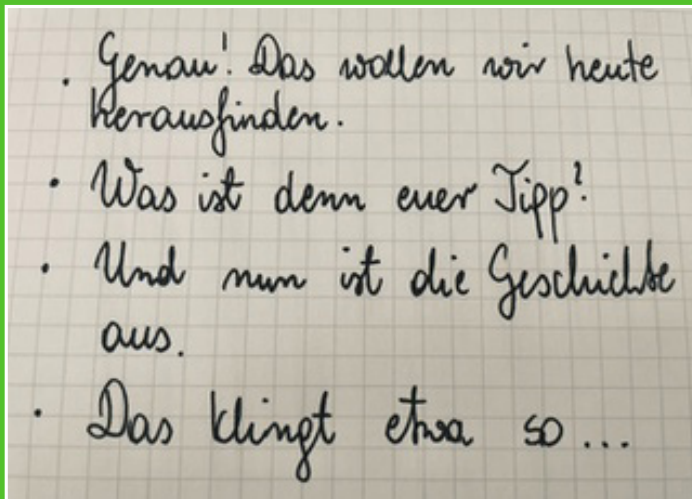 · Genau! Das wollen wir heute
herausfinden.
· Was ist denn euer Tipp?
· Und nun ist die Geschichte
aus.
· Das klingt etwa so...